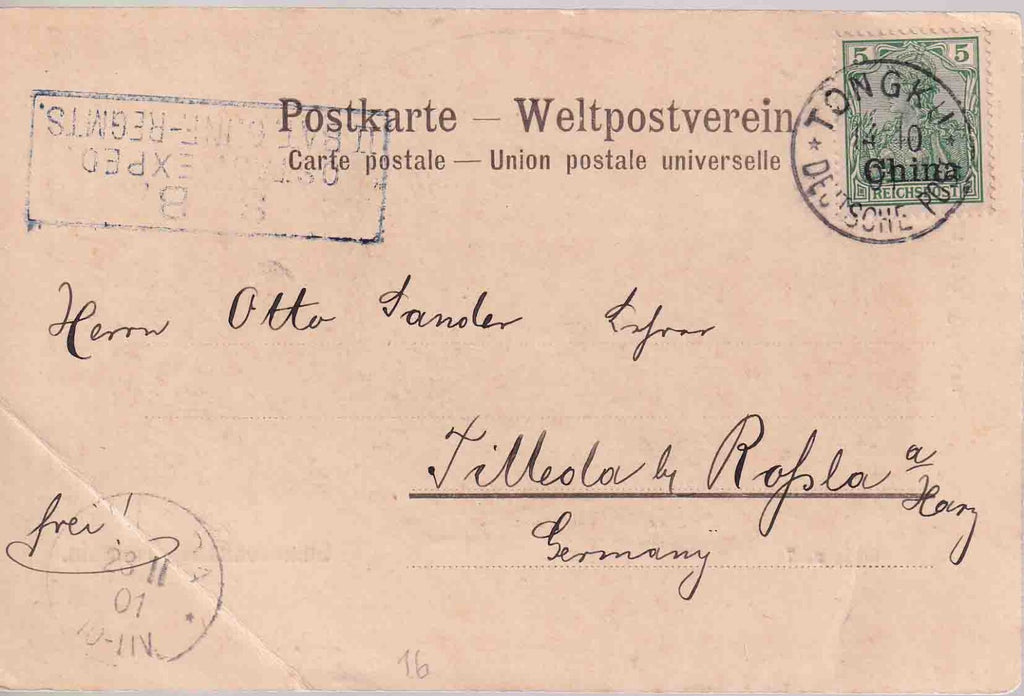 Postkarte — Weltpostverein
Carte postale — Union postale universelle
5 5
China
REICHSPOST
TONGKU
14 10
01
* DEUTSCHE POST *
S. B.
EXPED
BAT. 6. INF-REGMTS.
Herrn Otto Sander Lehrer
Tilleda by Roßla a/Harz
Germany
frei!
28 11
01
10-11N
16